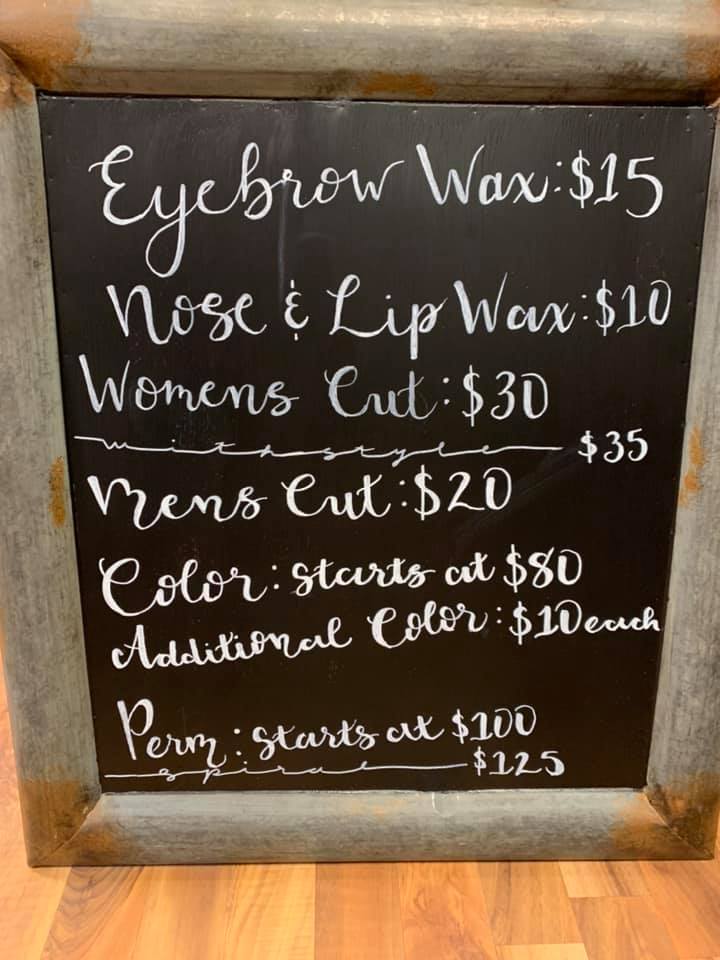 Eyebrow Wax: $15
Nose & Lip Wax: $10
Womens Cut: $30
with style $35
Mens Cut: $20
Color: starts at $80
Additional Color: $10 each
Perm: starts at $100
spiral $125